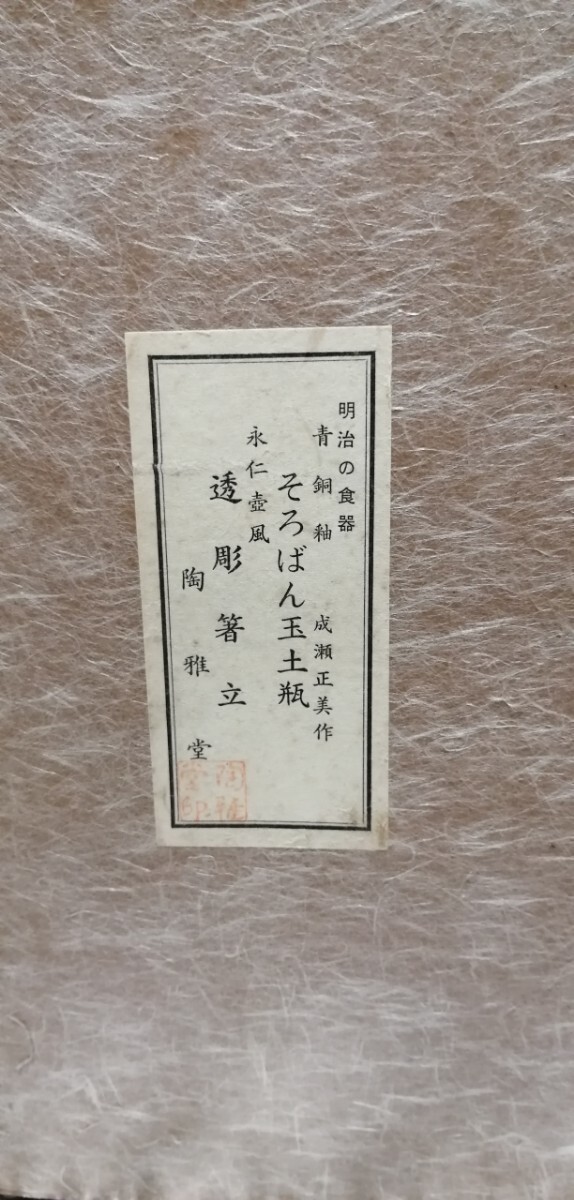 明治の食器
青銅釉　成瀬正美作
そろばん玉土瓶
永仁壺風
透彫箸立
陶雅堂
陶雅堂印